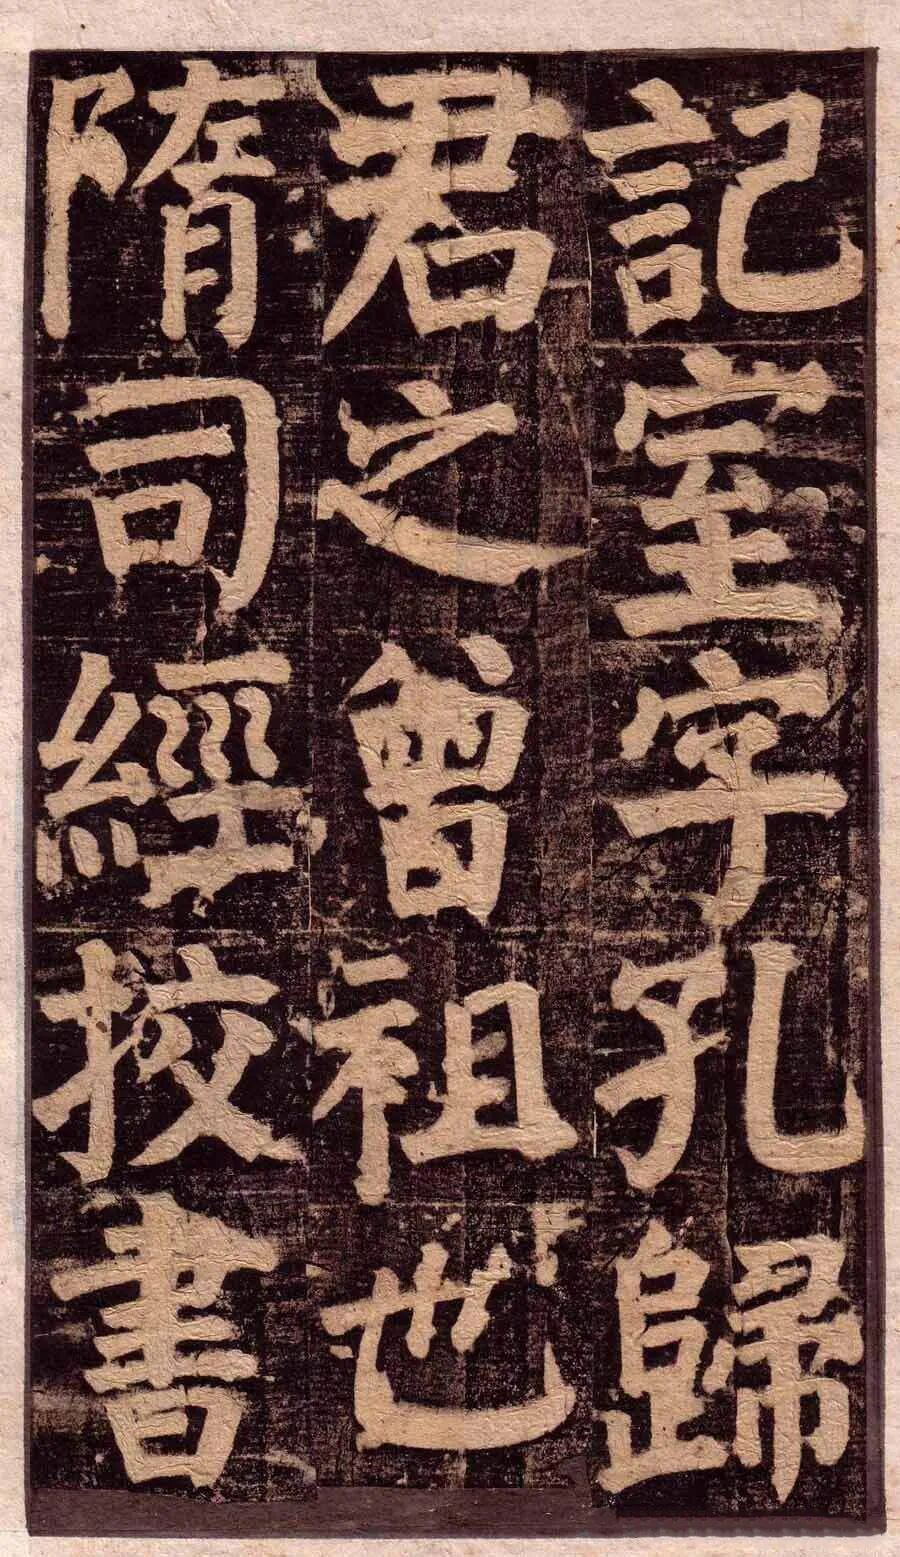 記室字孔歸
君之曾祖也
隋司經挍書